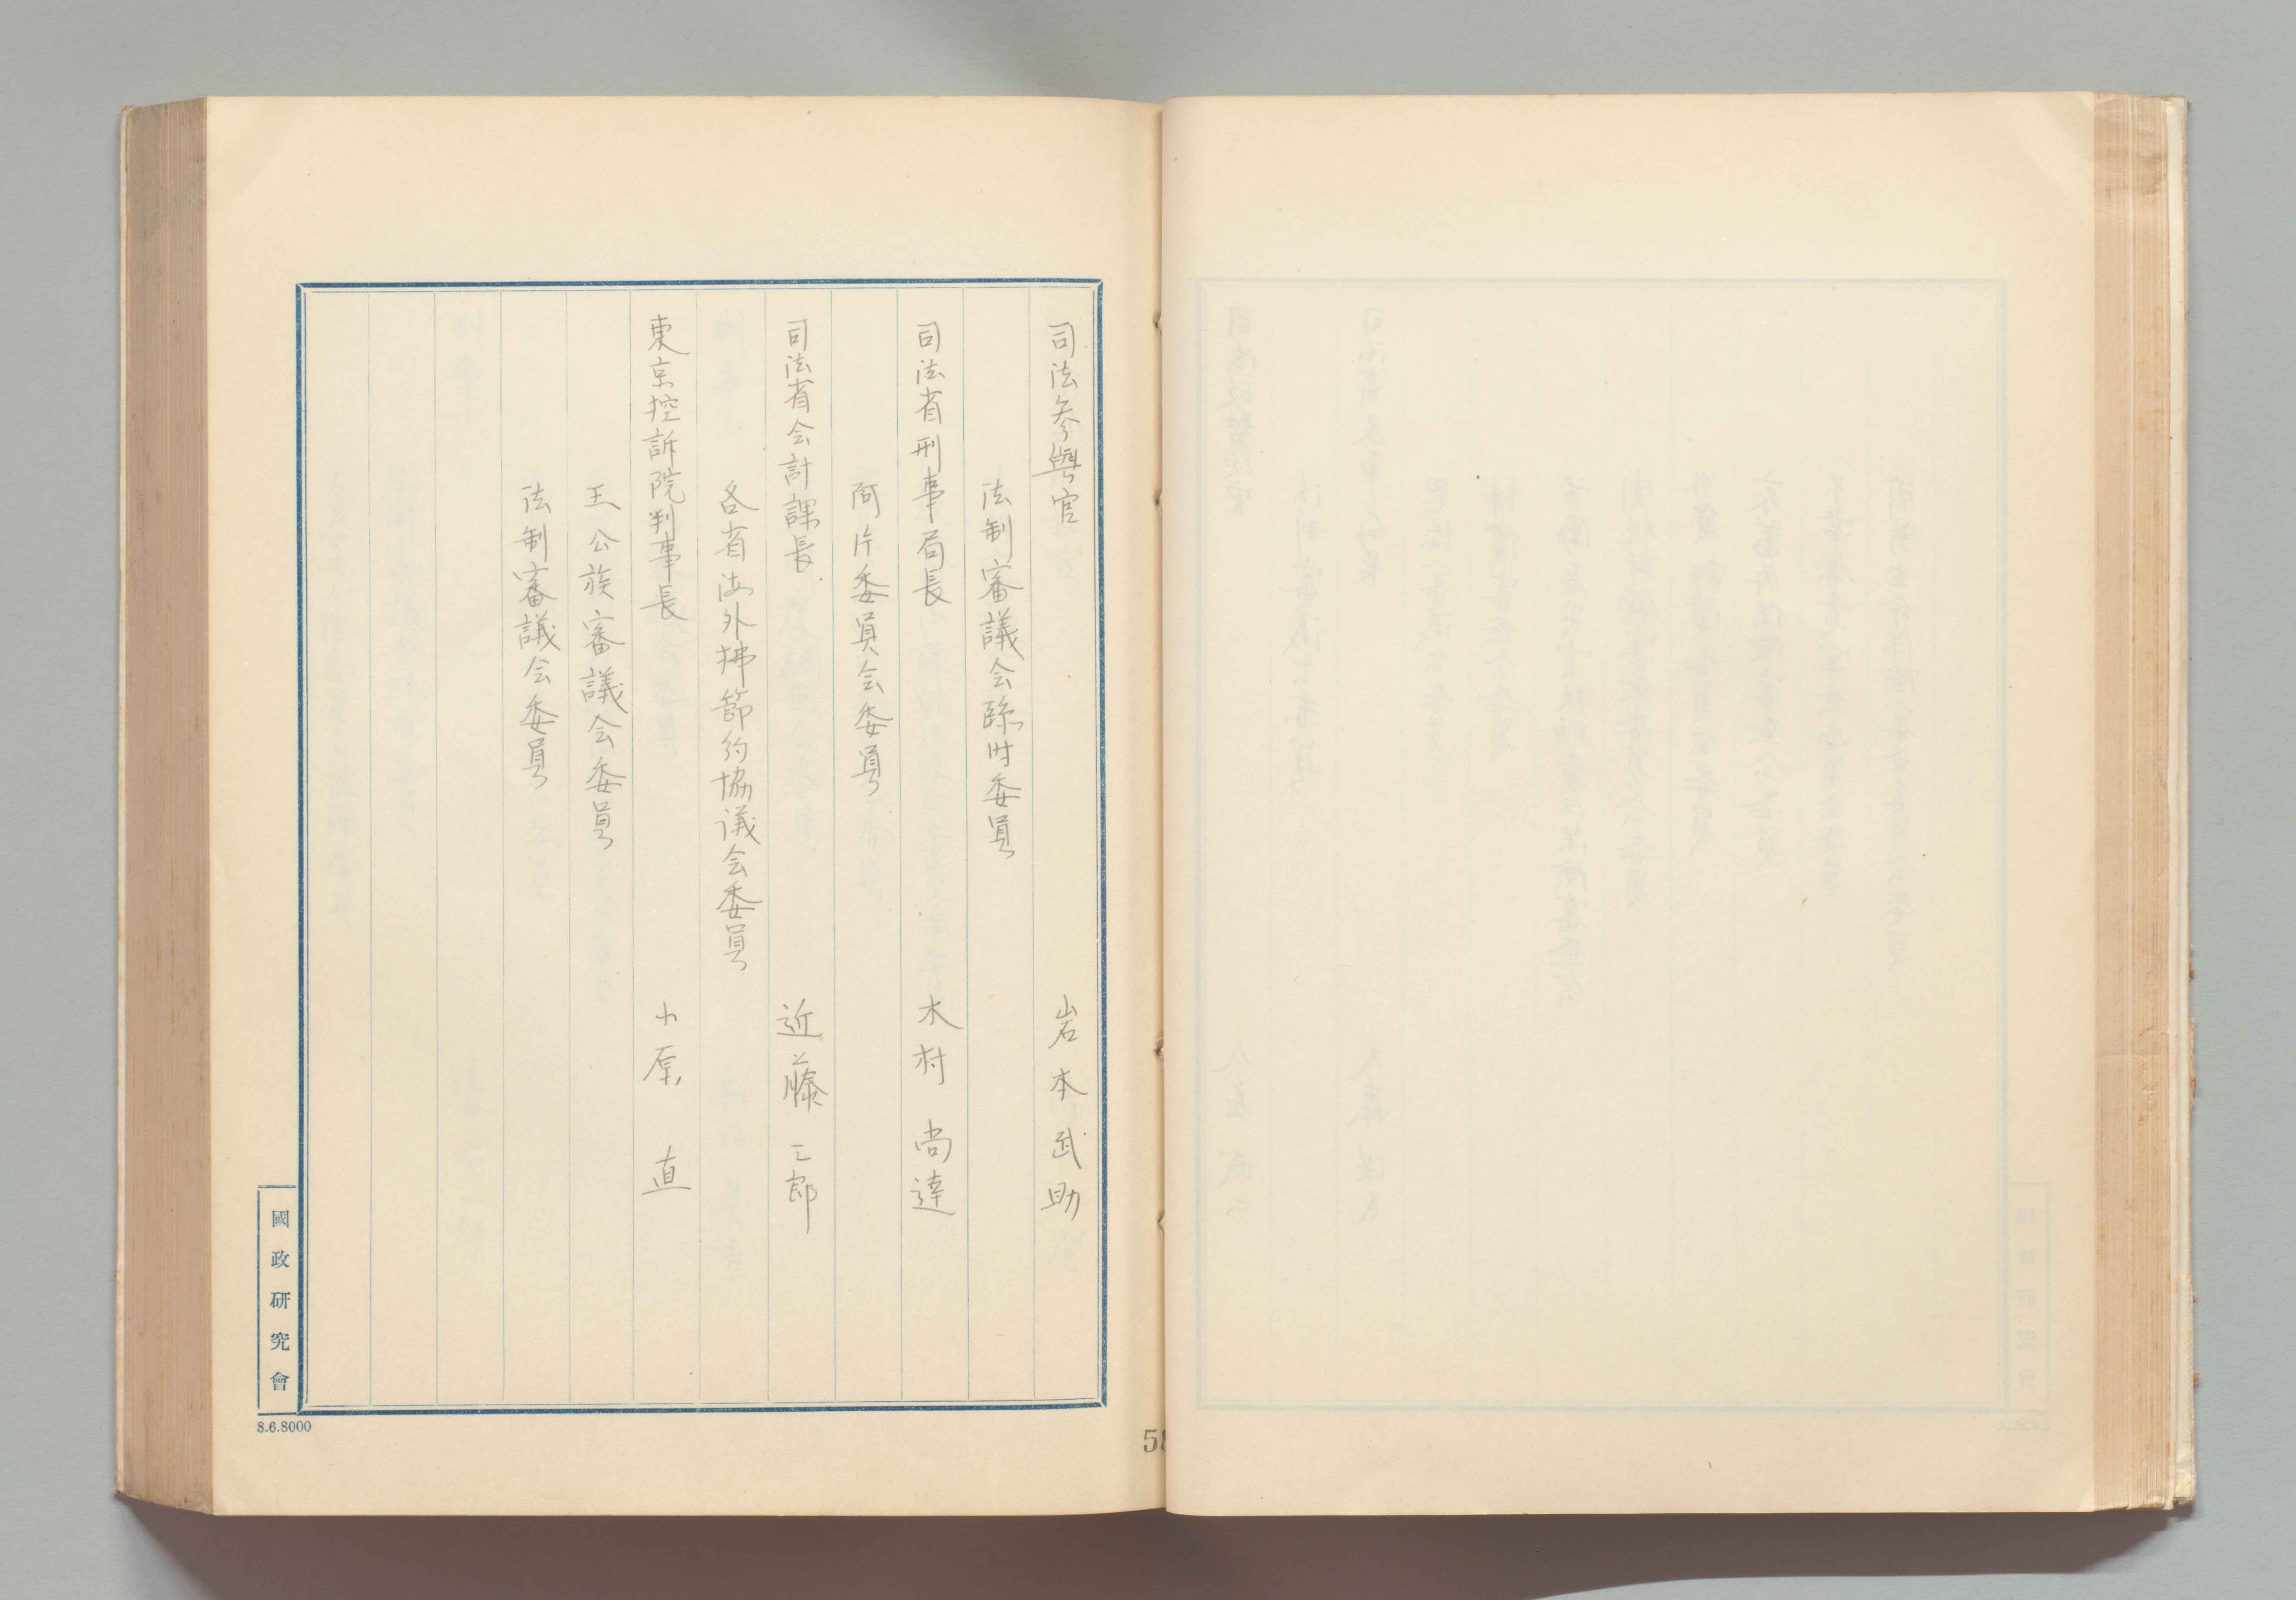 司法参與官　岩本武助
法制審議会臨時委員
司法省刑事局長　木村尚達
阿片委員会委員
司法省会計課長　近藤三郎
各省海外拂節約協議会委員
東京控訴院判事長　小原直
王公族審議会委員
法制審議会委員
國政研究會
8.6.8000